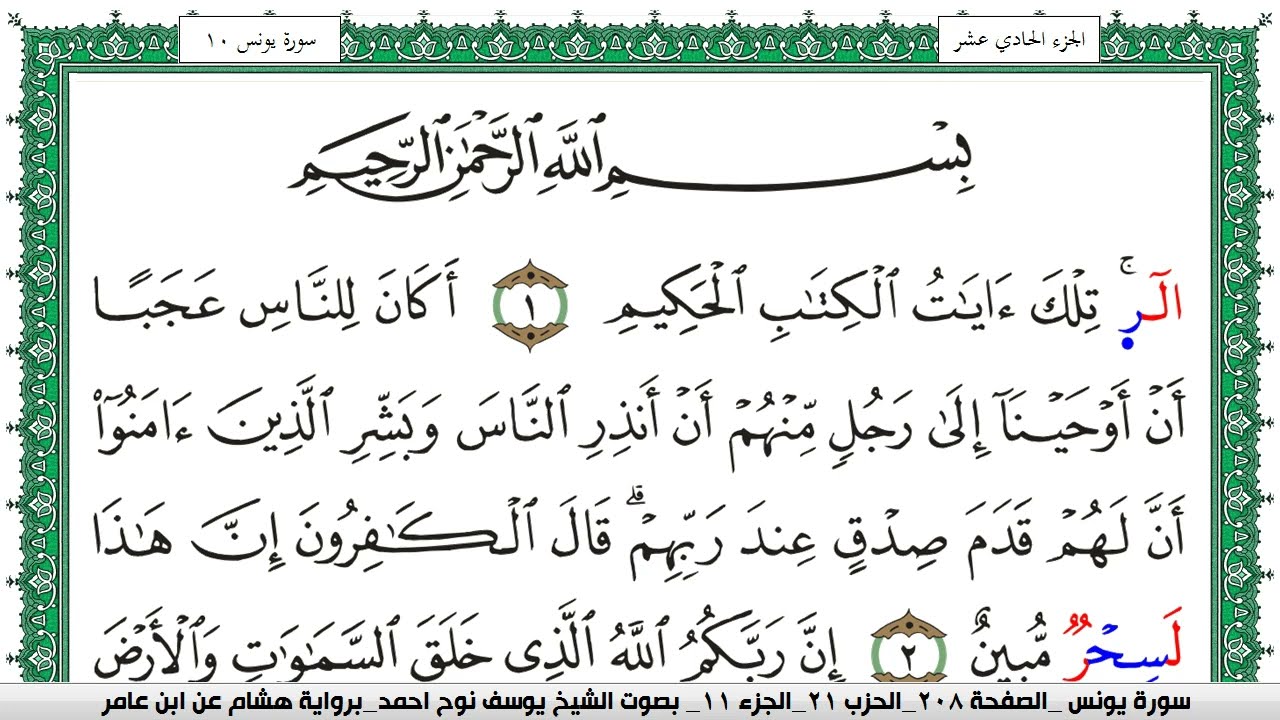 الجزء الحادي عشر
سورة يونس ١٠
بِسْمِ ٱللَّهِ ٱلرَّحْمَٰنِ ٱلرَّحِيمِ
الٓرۚ تِلْكَ ءَايَٰتُ ٱلْكِتَٰبِ ٱلْحَكِيمِ ١ أَكَانَ لِلنَّاسِ عَجَبًا
أَنْ أَوْحَيْنَآ إِلَىٰ رَجُلٍ مِّنْهُمْ أَنْ أَنذِرِ ٱلنَّاسَ وَبَشِّرِ ٱلَّذِينَ ءَامَنُوٓا۟
أَنَّ لَهُمْ قَدَمَ صِدْقٍ عِندَ رَبِّهِمْۗ قَالَ ٱلْكَٰفِرُونَ إِنَّ هَٰذَا
لَسِحْرٌ مُّبِينٌ ٢ إِنَّ رَبَّكُمُ ٱللَّهُ ٱلَّذِى خَلَقَ ٱلسَّمَٰوَٰتِ وَٱلْأَرْضَ
سورة يونس _الصفحة ٢٠٨_الحزب ٢١_الجزء ١١_ بصوت الشيخ يوسف نوح احمد_برواية هشام عن ابن عامر